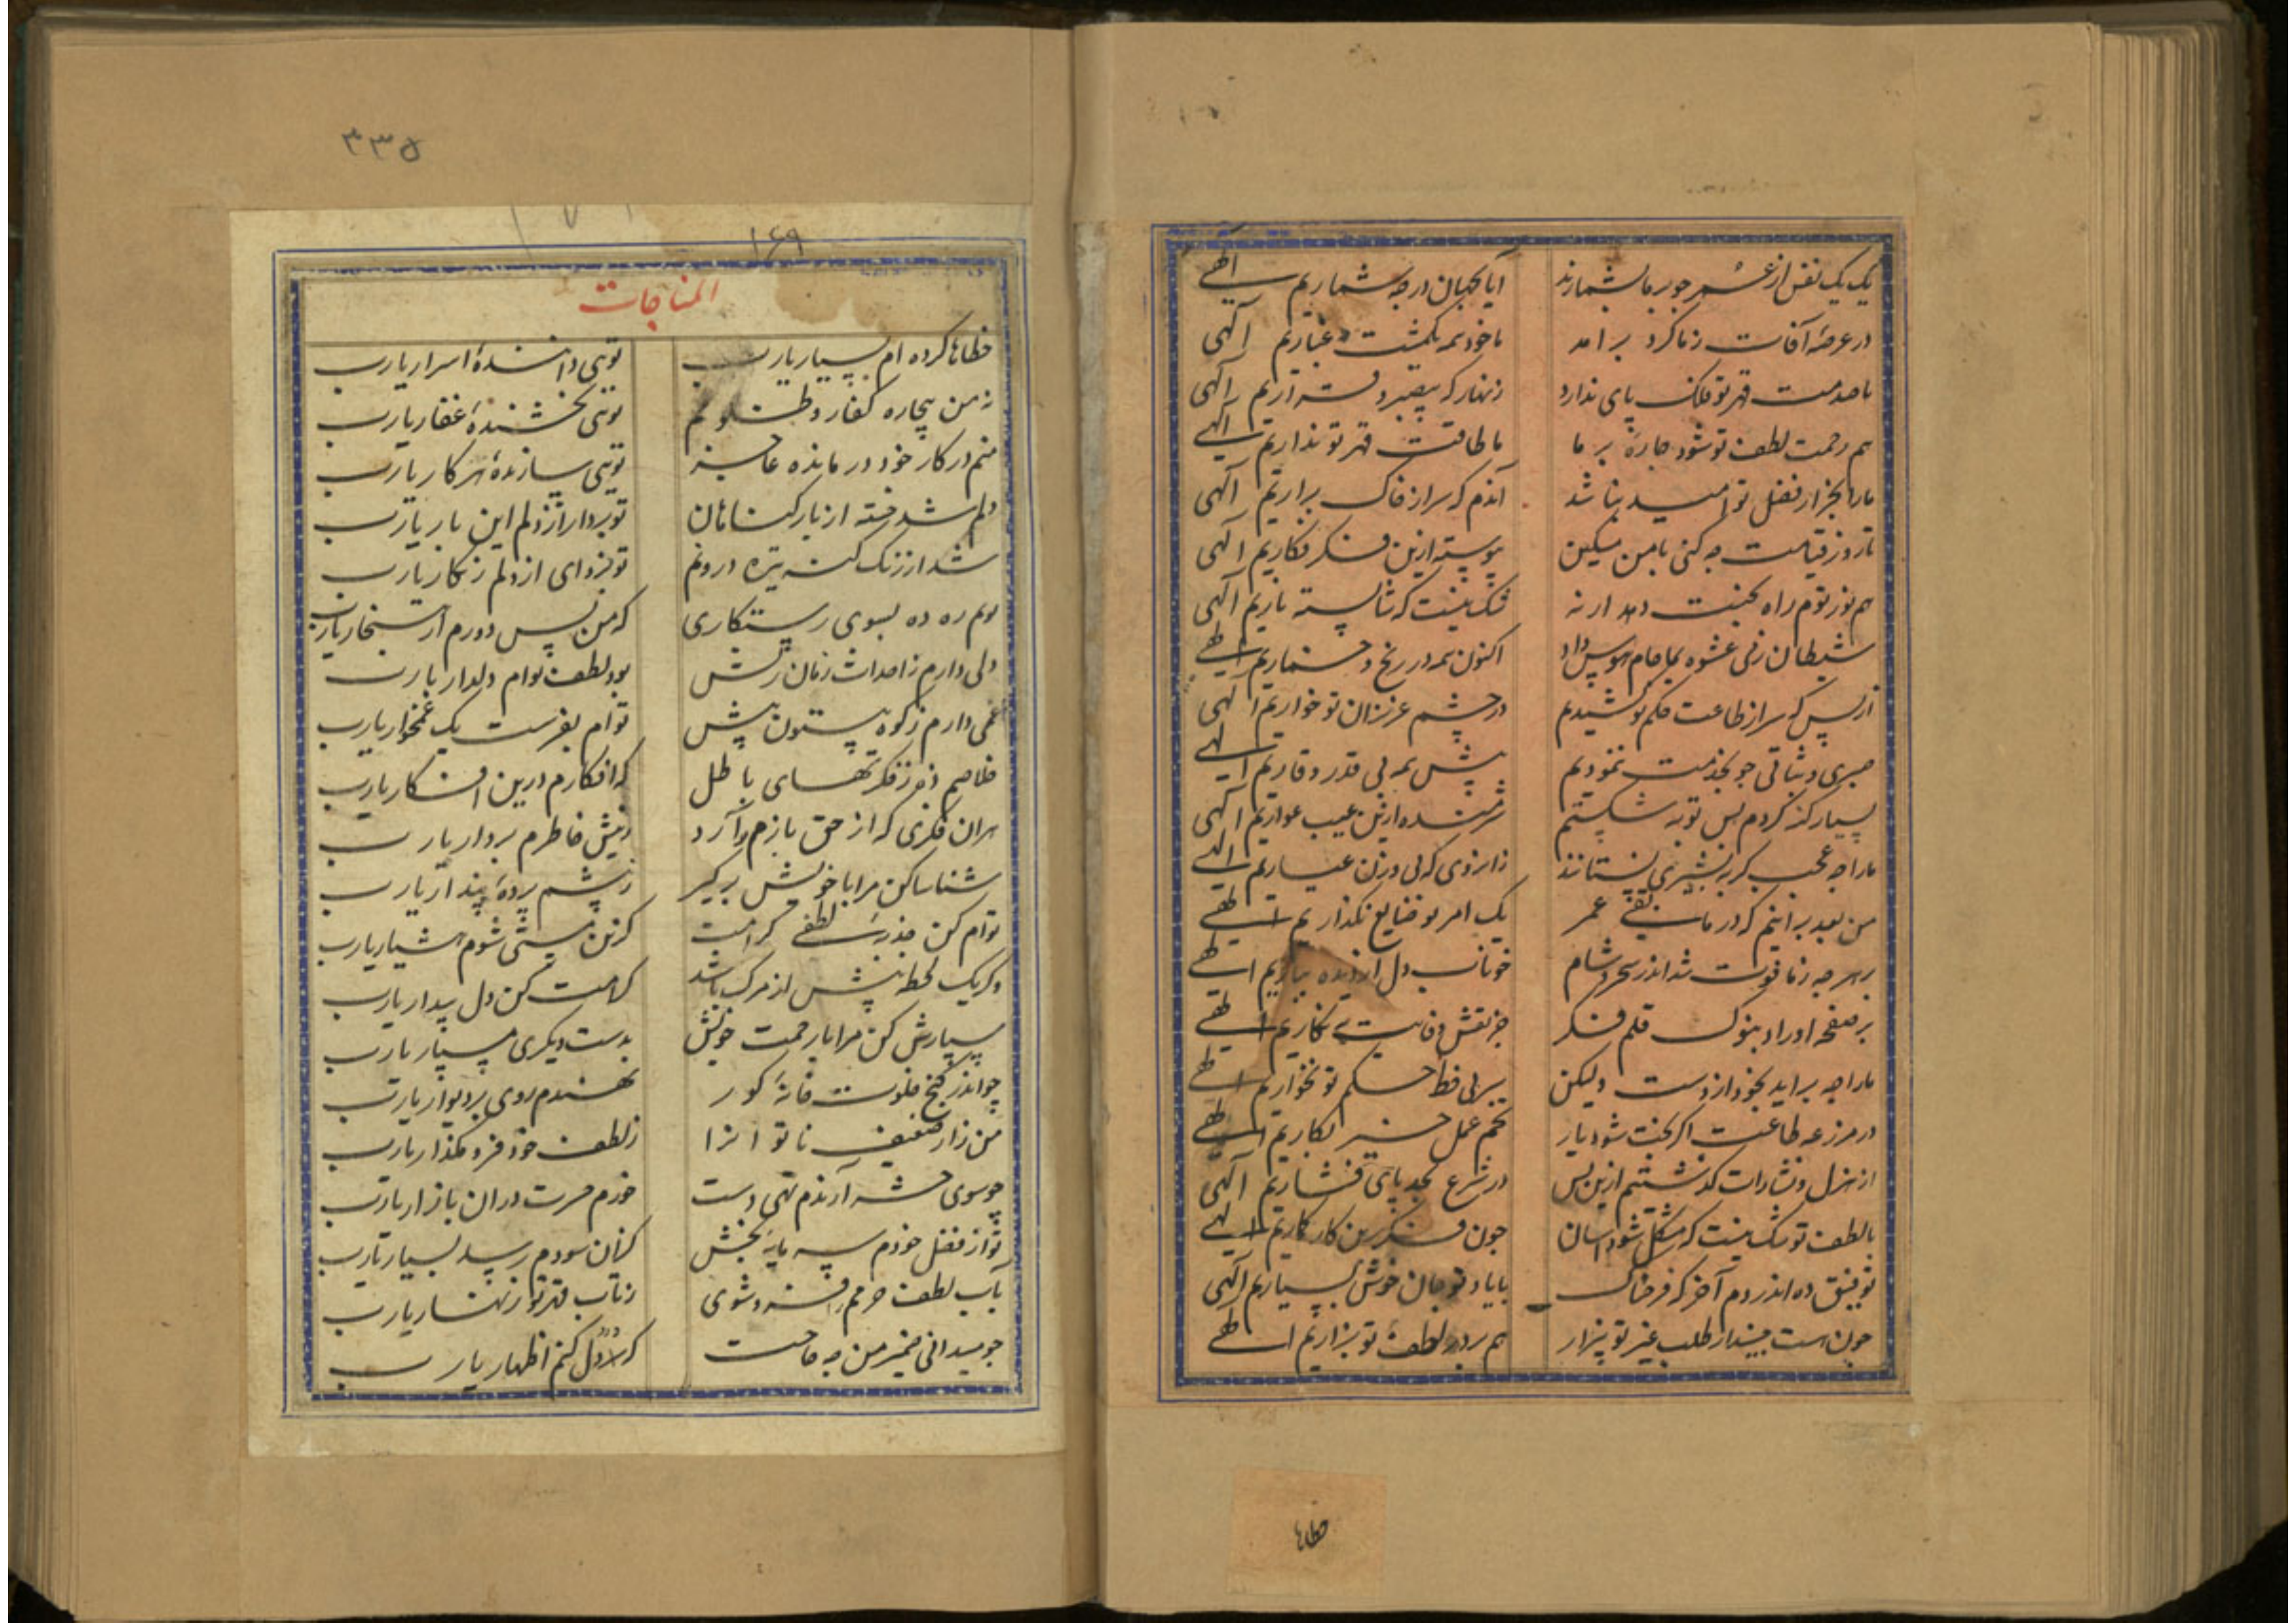 یک یک نفس از عمر چو بر ما بشمارند
آیا بجهان در چه شماریم الهی
در عرصهٔ آفات ز ما گرد برآمد
ما خود همه یکمشت غباریم الهی
با صدمت قهر تو فلک پای ندارد
زنهار که بیصبر و قراریم الهی
هم رحمت لطف تو شود چارهٔ بر ما
ما طاقت قهر تو نداریم الهی
ما را بجز از فضل تو امید نباشد
آندم که سر از خاک براریم الهی
تا روز قیامت چه کنی با من مسکین
پیوسته ازین فکر فکاریم الهی
هم نور توم راه بجنت دهد ار نه
شک نیست که شایسته ناریم الهی
شیطان زمی عشوه بما جام هوس داد
اکنون همه در رنج و خماریم الهی
از بس که سر از طاعت حکم تو کشیدیم
در چشم عزیزان تو خواریم الهی
صبری و ثباتی چو بخدمت ننمودیم
پیش همه بی قدر و قاریم الهی
بسیار گنه کردم بس توبه شکستیم
شرمنده ازین عیب عواریم الهی
ما را چه عجب گر به پشیزی نستانند
زانروی که بی وزن عیاریم الهی
من بعد برانیم که در مابقی عمر
یک امر تو ضایع نگذاریم الهی
بر هرچه ز ما فوت شد اندر سحر و شام
خوناب دل از دیده بباریم الهی
بر صفحه اوراد بنوک قلم فکر
جز نقش وفایت ننگاریم الهی
ما را چه براید بخود از دست ولیکن
سر بی خط حکم تو نخواریم الهی
در مزرعه طاعت اگر بخت شود یار
تخم عمل خیر بکاریم الهی
از هزل و بشارات گذشتیم ازین پس
در شرع بجد پای فشاریم الهی
با لطف تو شک نیست که مشکل شود آسان
چون فکر بین کار گماریم الهی
توفیق ده اندر دم آخر که فرحناک
با یاد تو جان خوش بسپاریم الهی
هم بر در لطف تو بزاریم الهی
خطاها
۳۳۵
۱۶۹
المناجات
خطاها کرده ام بسیار یارب
تویی دانندهٔ اسرار یارب
ز من بیچاره کفار و ظلوم
تویی بخشندهٔ غفار یارب
منم در کار خود در مانده عاجز
تویی سازندهٔ هر کار یارب
دلم شد خسته از بار گناهان
تو بردار از دلم این بار یارب
شد از زنگ گنه تیره درونم
تو بزدای از دلم زنگار یارب
توم ره ده بسوی رستگاری
که من بس دورم از هنجار یارب
دلی دارم ز احداث زمان ریش
بود لطف توام دلدار یارب
غمی دارم ز کوه بیستون بیش
توام بفرست یک غمخوار یارب
خلاصم ده ز فکرتهای باطل
که افکارم درین افکار یارب
هر ان فکری که از حق بازم آرد
ز پیش خاطرم بردار یارب
شناسا کن مرا با خویش برگیر
ز چشم پردهٔ پندار یارب
توام کن جذبهٔ لطفی کرامت
کزین مستی شوم هشیار یارب
وگر یک لحظه پیش از مرگ باشد
کرامت کن دل بیدار یارب
سپارش کن مرا با رحمت خویش
بدست دیگری مسپار یارب
چو اندر کنج خلوت خانهٔ گور
نهندم روی بر دیوار یارب
من زار ضعیف ناتوانرا
ز لطف خود فرو مگذار یارب
چو سوی حشر آرندم تهی دست
خورم حسرت دران بازار یارب
تو از فضل خودم سرمایهٔ بخش
کزان سودم رسد بسیار یارب
بآب لطف جرمم را فرو شوی
ز تاب قهر تو زنهار یارب
چو میدانی ضمیر من چه حاجت
که درد دل کنم اظهار یارب